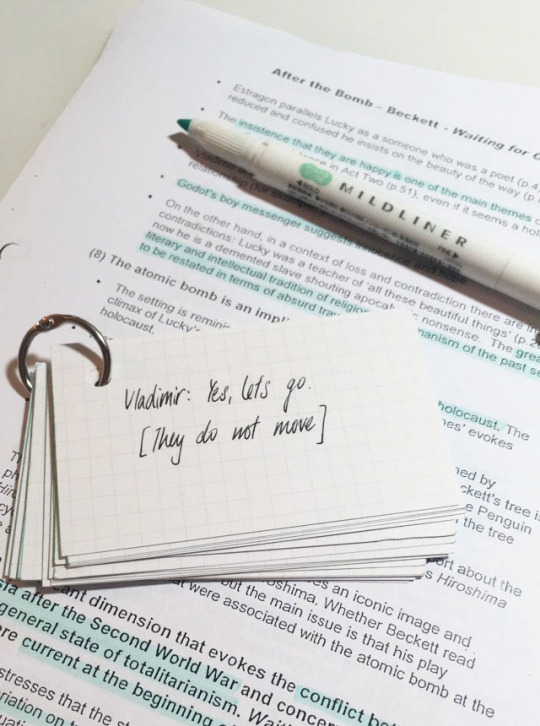 After the Bomb – Beckett - Waiting for G
Estragon parallels Lucky as a someone who was a poet (p.4
reduced and confused he insists on the beauty of the way (p.
The insistence that they are happy is one of the main themes
in Act Two (p.51), even if it seems a hol
Vladimir
relationship (for
Godot's boy messenger suggests
MILDLINER
On the other hand, in a context of loss and contradiction there are
contradictions: Lucky was a teacher of 'all these beautiful things' (p.2
now he is a demented slave shouting apoca nonsense. The grea
literary and intellectual tradition of religio manism of the past se
to be restated in terms of absurd tra
(8) The atomic bomb is an impli
The setting is remini
climax of Lucky's
holocaust.
Vladimir: Yes, lets go.
[They do not move]
holocaust. The
nes' evokes
ned by
ckett's tree is
e Penguin
the tree
ort about the
s Hiroshima
es an iconic image and
oshima. Whether Beckett read
out the main issue is that his play
at were associated with the atomic bomb at the
cant dimension that evokes the conflict be
sia after the Second World War and concer
general state of totalitarianism. Wait
re current at the beginning o
stresses that the st
ariation on